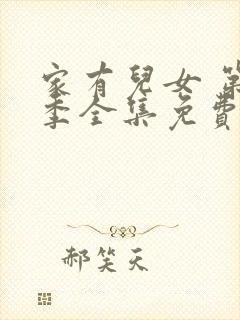 家有兒女 第
季全集免費
郝笑天